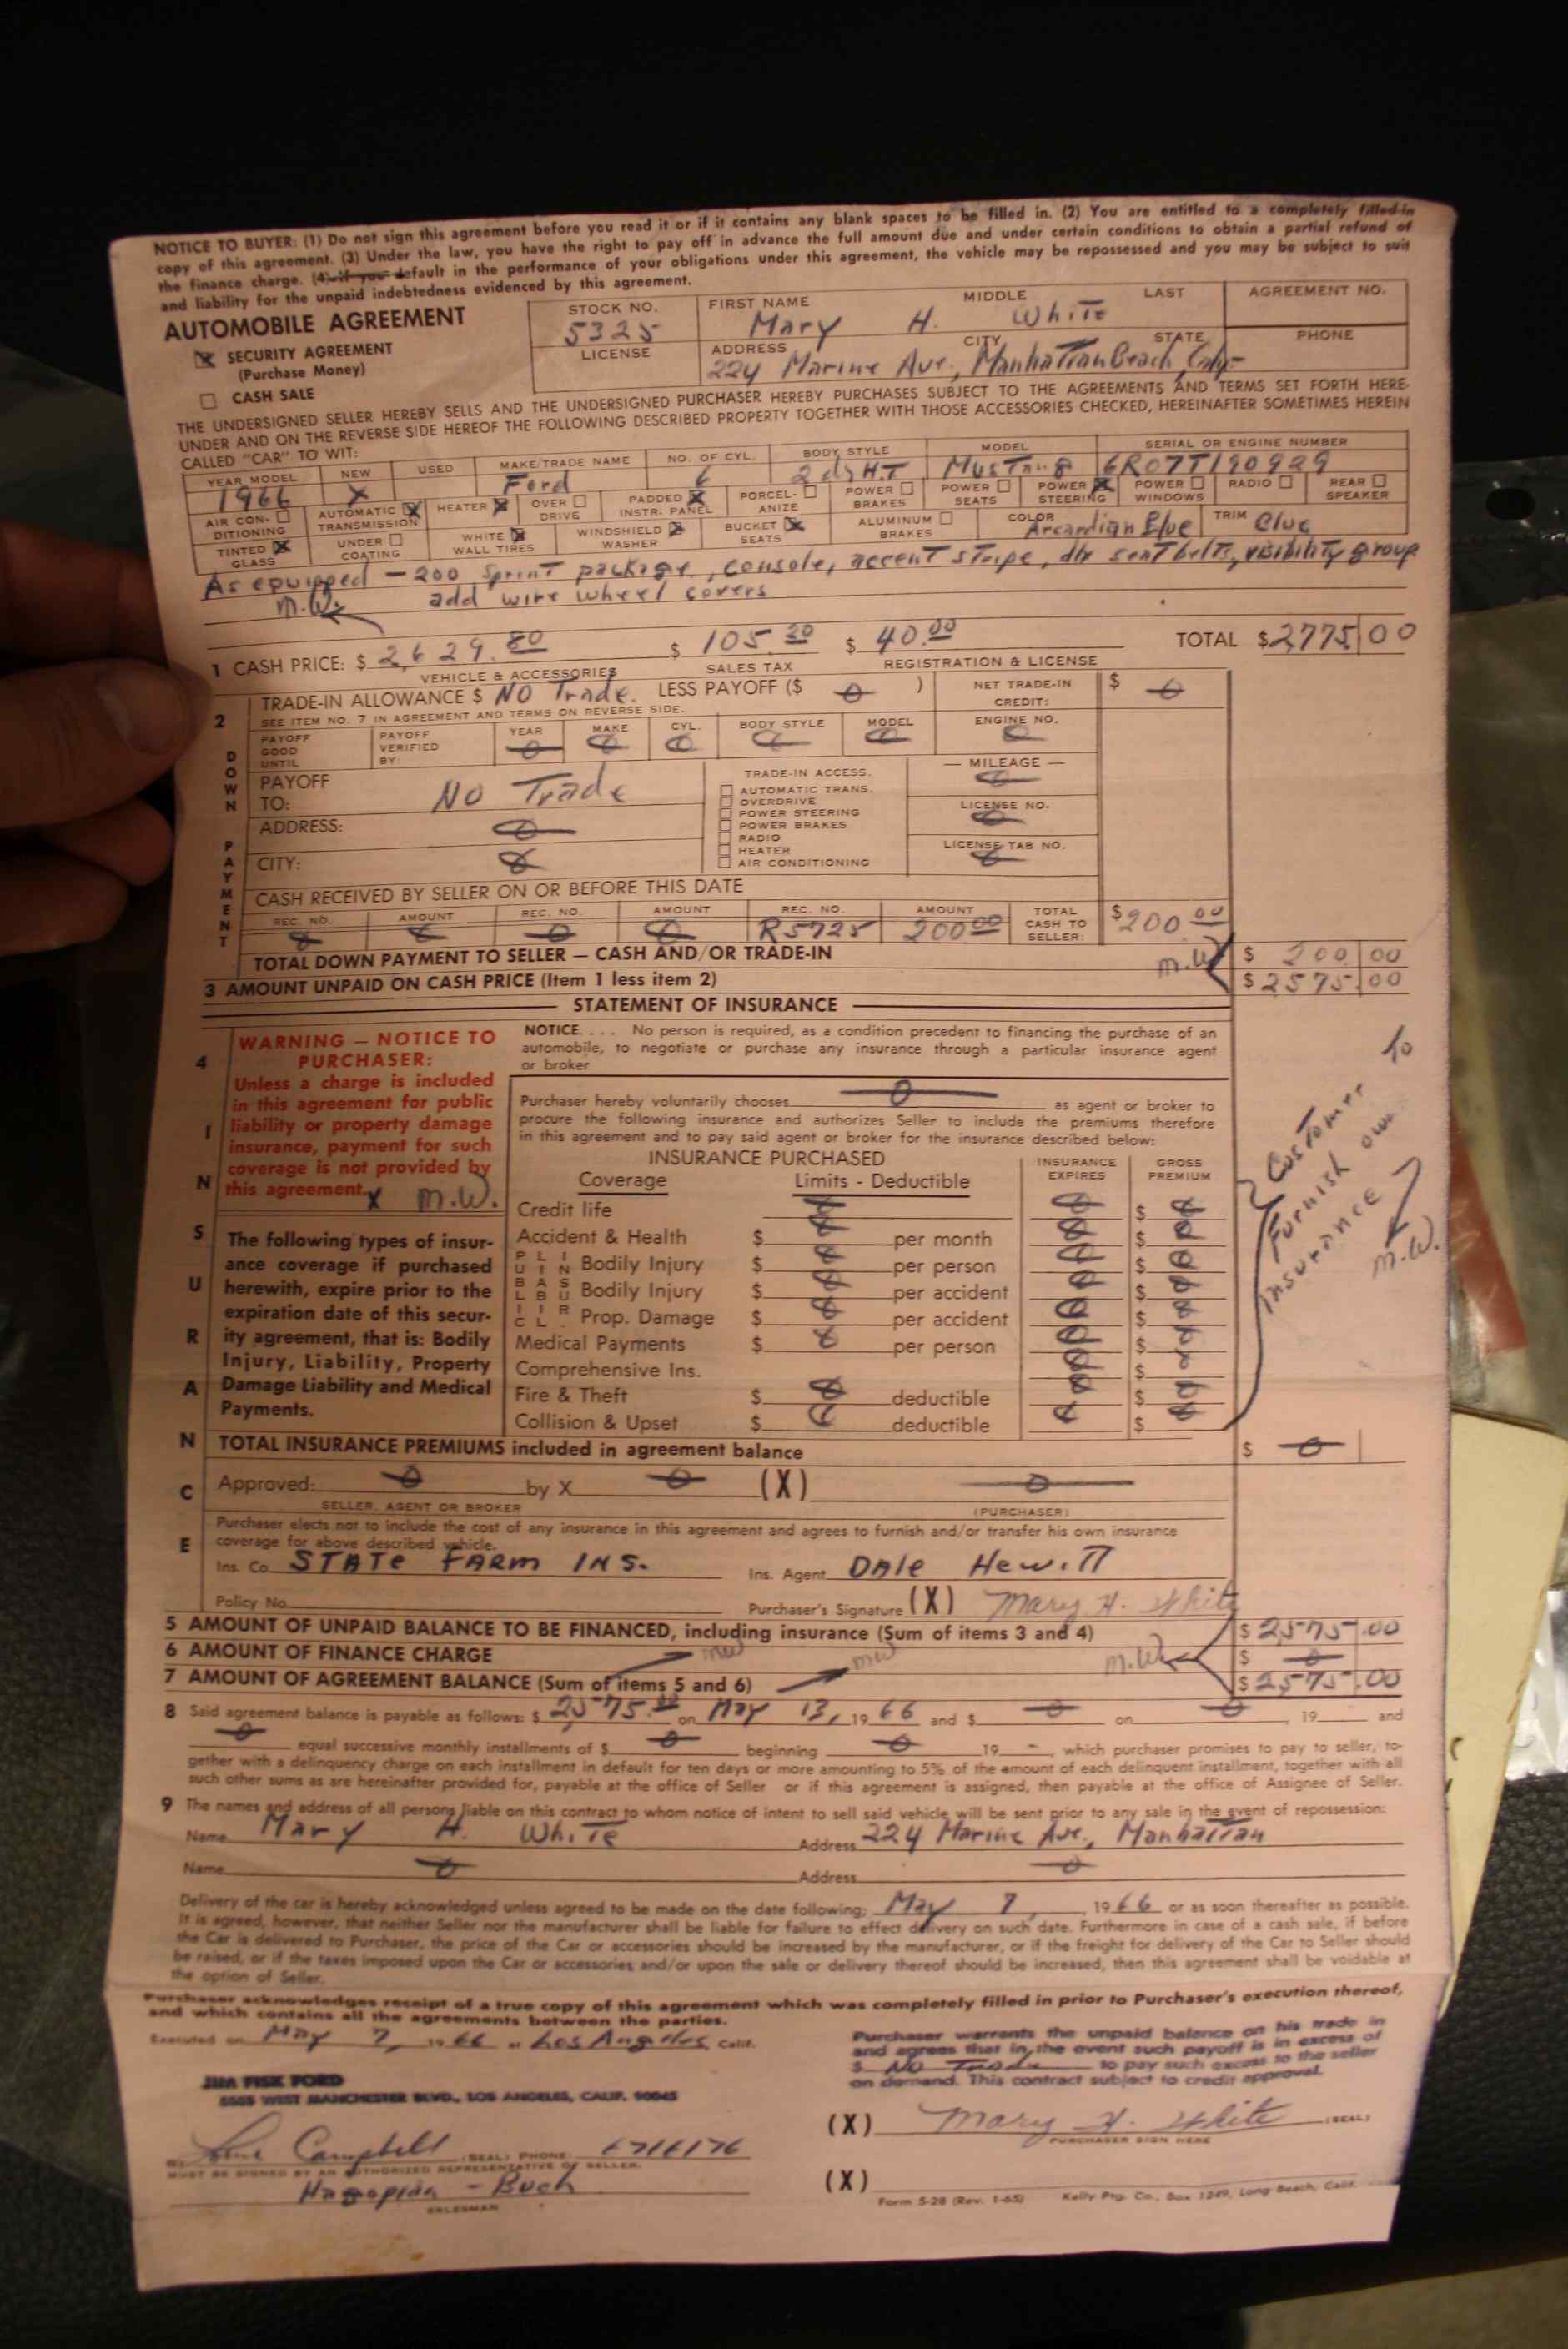 NOTICE TO BUYER: (1) Do not sign this agreement before you read it or if it contains any blank spaces to be filled in. (2) You are entitled to a completely filled-in
copy of this agreement. (3) Under the law, you have the right to pay off in advance the full amount due and under certain conditions to obtain a partial refund of
the finance charge. (4) If you default in the performance of your obligations under this agreement, the vehicle may be repossessed and you may be subject to suit
and liability for the unpaid indebtedness evidenced by this agreement.
AUTOMOBILE AGREEMENT
X SECURITY AGREEMENT
(Purchase Money)
CASH SALE
STOCK NO. FIRST NAME MIDDLE LAST AGREEMENT NO.
5325 Mary H. White
LICENSE ADDRESS CITY STATE PHONE
224 Marine Ave., Manhattan Beach, Calif
THE UNDERSIGNED SELLER HEREBY SELLS AND THE UNDERSIGNED PURCHASER HEREBY PURCHASES SUBJECT TO THE AGREEMENTS AND TERMS SET FORTH HERE-
UNDER AND ON THE REVERSE SIDE HEREOF THE FOLLOWING DESCRIBED PROPERTY TOGETHER WITH THOSE ACCESSORIES CHECKED, HEREINAFTER SOMETIMES HEREIN
CALLED "CAR" TO WIT:
YEAR MODEL NEW USED MAKE/TRADE NAME NO. OF CYL. BODY STYLE MODEL SERIAL OR ENGINE NUMBER
1966 X Ford 6 2 dr H.T Mustang 6R07T190929
AIR CON-DITIONING AUTOMATIC TRANSMISSION X HEATER X OVER DRIVE PADDED INSTR. PANEL X PORCEL-ANIZE POWER BRAKES POWER SEATS POWER STEERING X POWER WINDOWS RADIO REAR SPEAKER
TINTED GLASS X UNDER COATING WHITE WALL TIRES X WINDSHIELD WASHER X BUCKET SEATS X ALUMINUM BRAKES COLOR Arcardian Blue TRIM Blue
As equipped - 200 Sprint package, console, accent stripe, dlx seat belts, visibility group
M.W. add wire wheel covers
1 CASH PRICE: $ 2,629.80 $ 105.20 $ 40.00 TOTAL $2775.00
VEHICLE & ACCESSORIES SALES TAX REGISTRATION & LICENSE
2 DOWN PAYMENT
TRADE-IN ALLOWANCE $ NO Trade. LESS PAYOFF ($ 0 ) NET TRADE-IN CREDIT: $ 0
SEE ITEM NO. 7 IN AGREEMENT AND TERMS ON REVERSE SIDE.
PAYOFF GOOD UNTIL PAYOFF VERIFIED BY: YEAR MAKE CYL. BODY STYLE MODEL ENGINE NO.
0 0 0 0 0 0
PAYOFF TO: NO Trade
TRADE-IN ACCESS. — MILEAGE —
AUTOMATIC TRANS. 0
OVERDRIVE
POWER STEERING LICENSE NO.
POWER BRAKES 0
RADIO
HEATER LICENSE TAB NO.
AIR CONDITIONING 0
ADDRESS: 0
CITY: 0
CASH RECEIVED BY SELLER ON OR BEFORE THIS DATE
REC. NO. AMOUNT REC. NO. AMOUNT REC. NO. AMOUNT TOTAL CASH TO SELLER:
0 0 0 0 R5725 200.00 $200.00
TOTAL DOWN PAYMENT TO SELLER — CASH AND/OR TRADE-IN M.W. $ 200.00
3 AMOUNT UNPAID ON CASH PRICE (Item 1 less item 2) $2575.00
STATEMENT OF INSURANCE
4 INSURANCE
WARNING — NOTICE TO
PURCHASER:
Unless a charge is included
in this agreement for public
liability or property damage
insurance, payment for such
coverage is not provided by
this agreement. X M.W.
The following types of insur-
ance coverage if purchased
herewith, expire prior to the
expiration date of this secur-
ity agreement, that is: Bodily
Injury, Liability, Property
Damage Liability and Medical
Payments.
NOTICE.... No person is required, as a condition precedent to financing the purchase of an
automobile, to negotiate or purchase any insurance through a particular insurance agent
or broker
Purchaser hereby voluntarily chooses 0 as agent or broker to
procure the following insurance and authorizes Seller to include the premiums therefore
in this agreement and to pay said agent or broker for the insurance described below:
INSURANCE PURCHASED INSURANCE EXPIRES GROSS PREMIUM
Coverage Limits - Deductible
Credit life 0 0 $ 0
Accident & Health $ 0 per month 0 $ 0
PUBLIC LIABIL. INSUR.
Bodily Injury $ 0 per person 0 $ 0
Bodily Injury $ 0 per accident 0 $ 0
Prop. Damage $ 0 per accident 0 $ 0
Medical Payments $ 0 per person 0 $ 0
Comprehensive Ins. 0 $ 0
Fire & Theft $ 0 deductible 0 $ 0
Collision & Upset $ 0 deductible 0 $ 0
Customer to
furnish own
insurance
M.W.
TOTAL INSURANCE PREMIUMS included in agreement balance $ 0
Approved: 0 by X 0 (X) 0
SELLER, AGENT OR BROKER (PURCHASER)
Purchaser elects not to include the cost of any insurance in this agreement and agrees to furnish and/or transfer his own insurance
coverage for above described vehicle.
Ins. Co. STATE FARM INS. Ins. Agent DALE Hewitt
Policy No. Purchaser's Signature (X) Mary H. White
5 AMOUNT OF UNPAID BALANCE TO BE FINANCED, including insurance (Sum of items 3 and 4) $2,575.00
6 AMOUNT OF FINANCE CHARGE MW M.W. $ 0
7 AMOUNT OF AGREEMENT BALANCE (Sum of items 5 and 6) MW $2,575.00
8 Said agreement balance is payable as follows: $ 2,575.00 on May 13, 1966 and $ 0 on 0, 19 and
0 equal successive monthly installments of $ 0 beginning 0 19 -, which purchaser promises to pay to seller, to-
gether with a delinquency charge on each installment in default for ten days or more amounting to 5% of the amount of each delinquent installment, together with all
such other sums as are hereinafter provided for, payable at the office of Seller or if this agreement is assigned, then payable at the office of Assignee of Seller.
9 The names and address of all persons liable on this contract to whom notice of intent to sell said vehicle will be sent prior to any sale in the event of repossession:
Name Mary H. White Address 224 Marine Ave., Manhattan
Name 0 Address 0
Delivery of the car is hereby acknowledged unless agreed to be made on the date following; May 7, 1966 or as soon thereafter as possible.
It is agreed, however, that neither Seller nor the manufacturer shall be liable for failure to effect delivery on such date. Furthermore in case of a cash sale, if before
the Car is delivered to Purchaser, the price of the Car or accessories should be increased by the manufacturer, or if the freight for delivery of the Car to Seller should
be raised, or if the taxes imposed upon the Car or accessories and/or upon the sale or delivery thereof should be increased, then this agreement shall be voidable at
the option of Seller.
Purchaser acknowledges receipt of a true copy of this agreement which was completely filled in prior to Purchaser's execution thereof,
and which contains all the agreements between the parties.
Executed on May 7, 1966 at Los Angeles, Calif.
Purchaser warrants the unpaid balance on his trade in
and agrees that in the event such payoff is in excess of
$ NO Trade to pay such excess to the seller
on demand. This contract subject to credit approval.
JIM FISK FORD
WEST MANCHESTER BLVD., LOS ANGELES, CALIF. 90045
Campbell (SEAL) PHONE: 6716176
MUST BE SIGNED BY AN AUTHORIZED REPRESENTATIVE OF SELLER.
(X) Mary H. White (SEAL)
PURCHASER SIGN HERE
Hagopian - Buch
SALESMAN
(X)
Form 5-28 (Rev. 1-65) Kelly Ptg. Co., Box 1249, Long Beach, Calif.